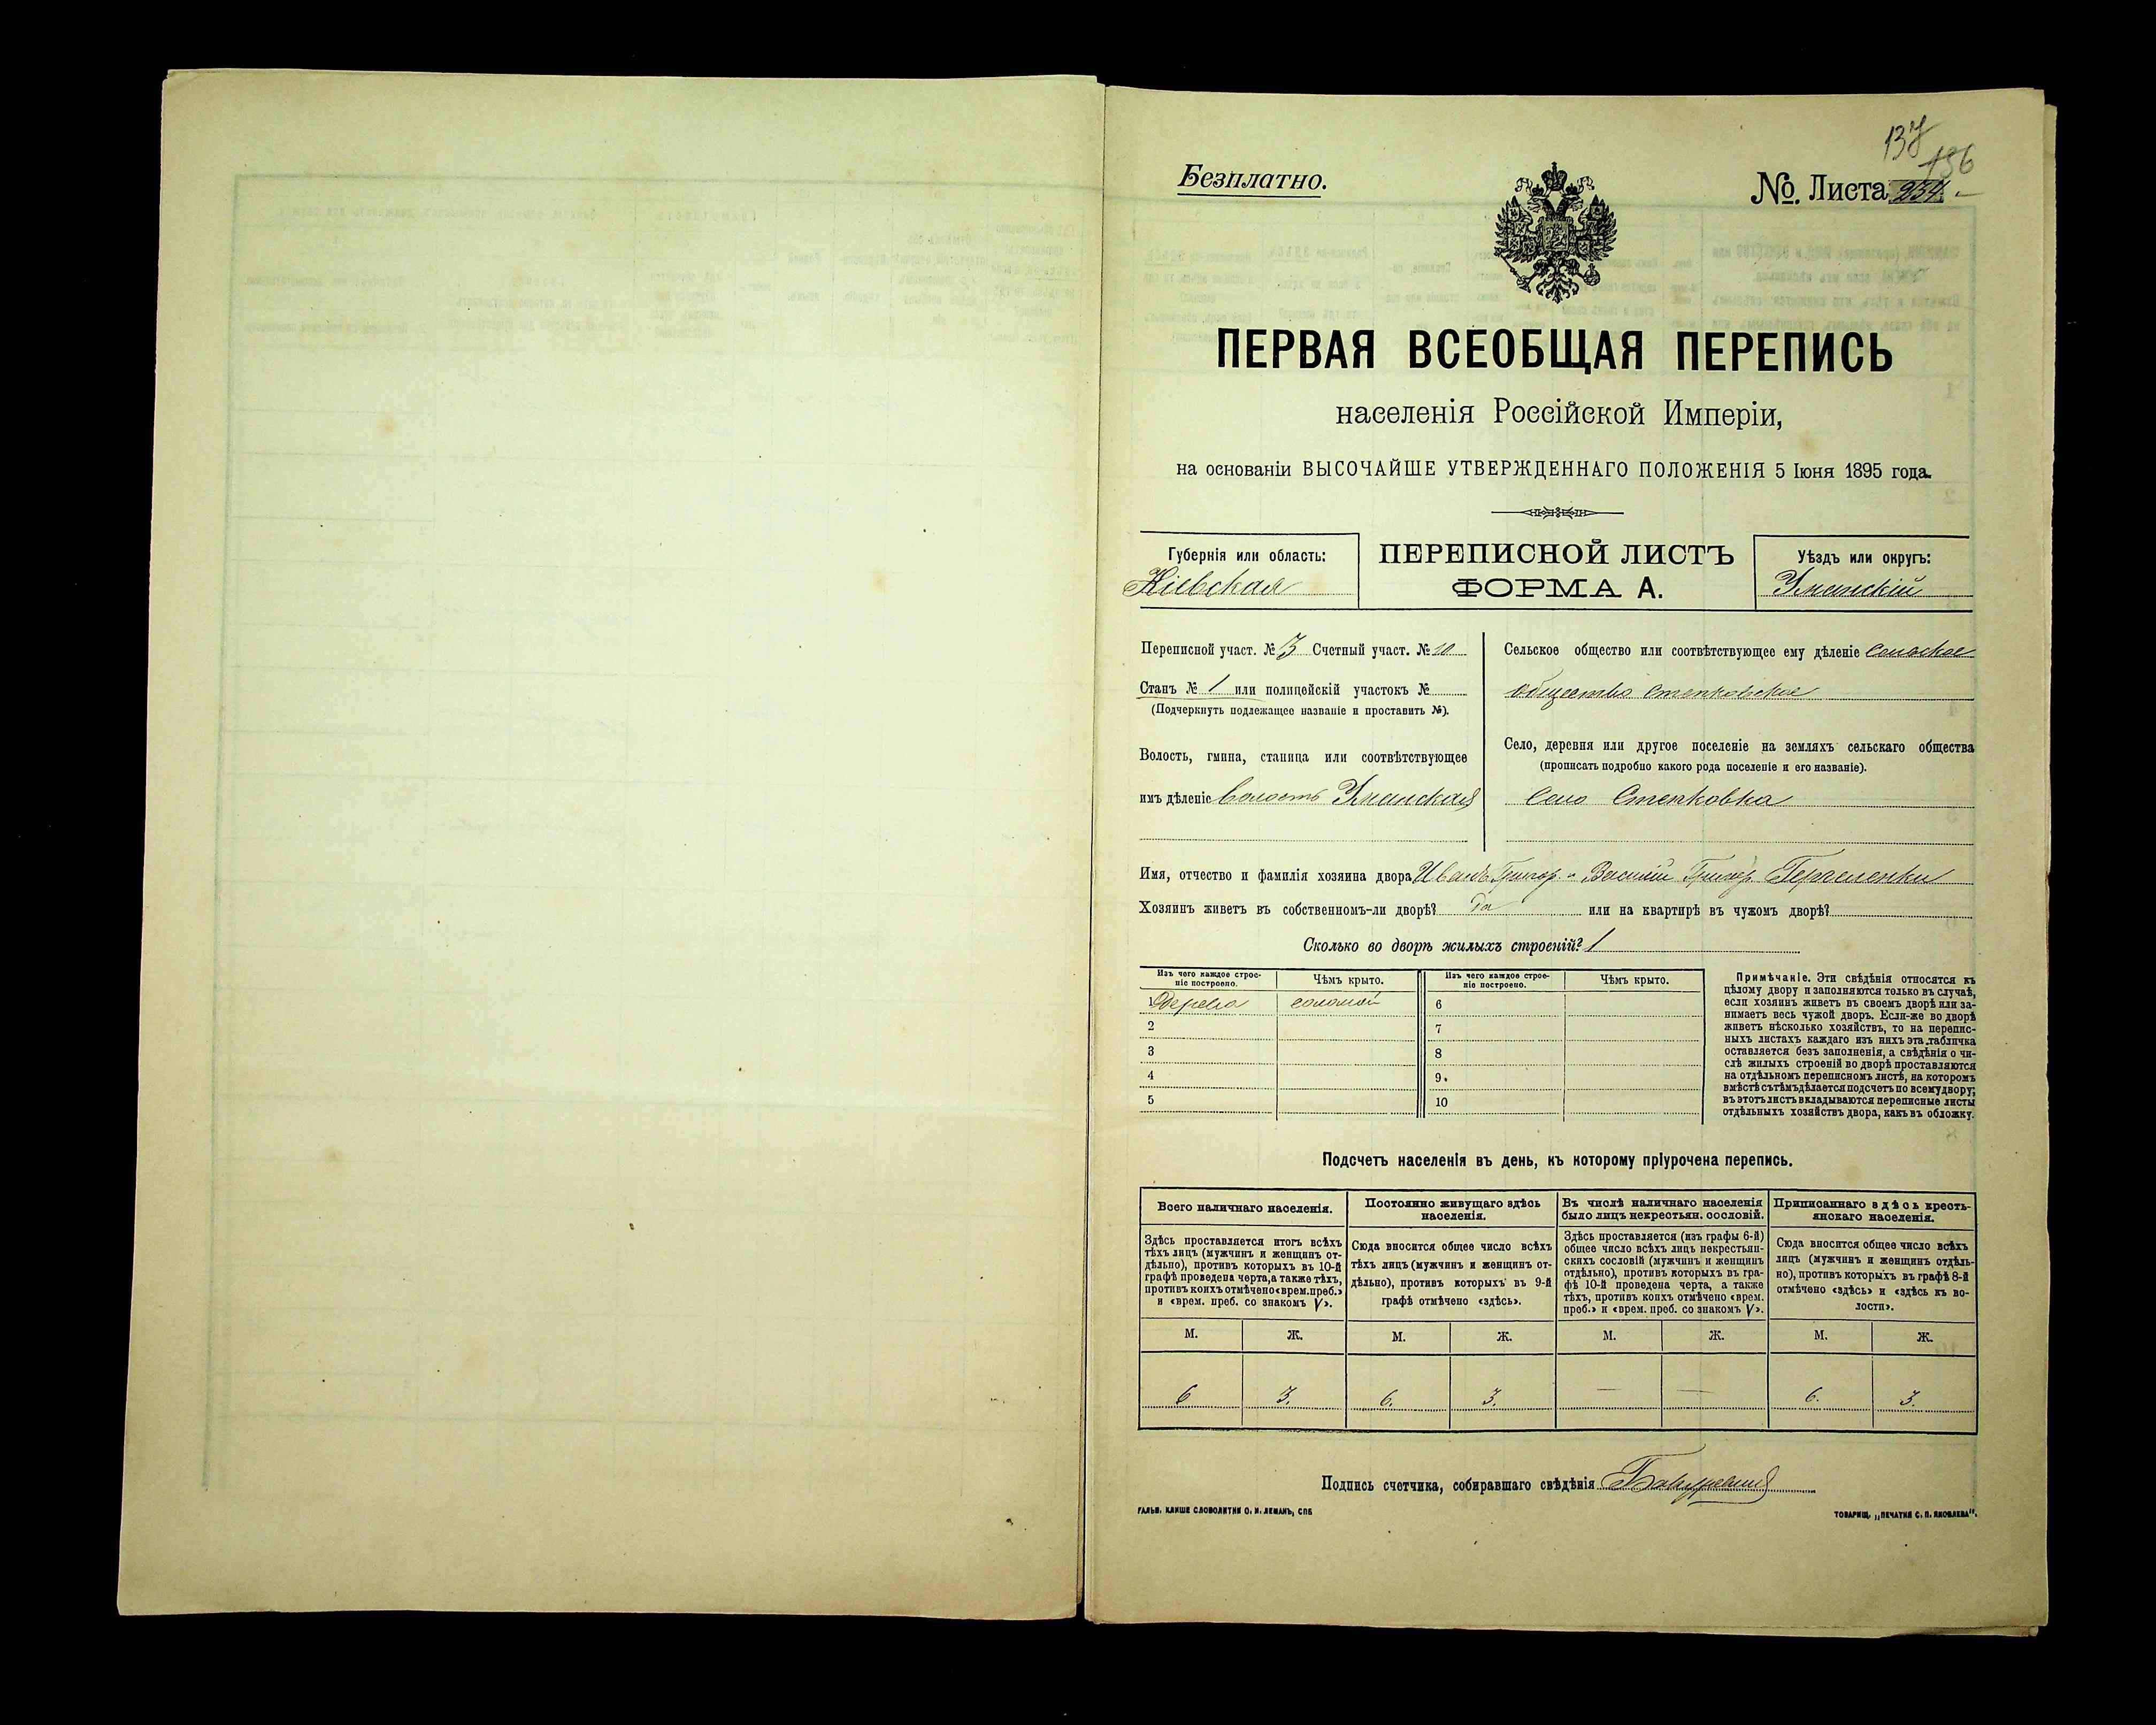 137
136
Безплатно.
№. Листа 234.
ПЕРВАЯ ВСЕОБЩАЯ ПЕРЕПИСЬ
населенія Россійской Имперіи,
на основаніи ВЫСОЧАЙШЕ УТВЕРЖДЕННАГО ПОЛОЖЕНІЯ 5 Іюня 1895 года.
Губернія или область:
Кіевская
ПЕРЕПИСНОЙ ЛИСТЪ
ФОРМА А.
Уѣздъ или округъ:
Уманскій
Переписной участ. № 3 Счетный участ. № 10
Станъ № 1 или полицейскій участокъ №
(Подчеркнуть подлежащее названіе и проставить №).
Волость, гмина, станица или соотвѣтствующее
имъ дѣленіе волость Уманская
Сельское общество или соотвѣтствующее ему дѣленіе сельское
общество Степковское
Село, деревня или другое поселеніе на земляхъ сельскаго общества
(прописать подробно какого рода поселеніе и его названіе).
Село Степковка
Имя, отчество и фамилія хозяина двора Иванъ Григор. и Василій Григор.
Хозяинъ живетъ въ собственномъ-ли дворѣ? да или на квартирѣ въ чужомъ дворѣ?
Сколько во дворѣ жилыхъ строеній? 1
Изъ чего каждое строе-
ніе построено.
Чѣмъ крыто.
Изъ чего каждое строе-
ніе построено.
Чѣмъ крыто.
1 дерева соломой 6
2 7
3 8
4 9.
5 10
Примѣчаніе. Эти свѣдѣнія относятся къ
цѣлому двору и заполняются только въ случаѣ,
если хозяинъ живетъ въ своемъ дворѣ или за-
нимаетъ весь чужой дворъ. Если-же во дворѣ
живетъ нѣсколько хозяйствъ, то на перепис-
ныхъ листахъ каждаго изъ нихъ эта табличка
оставляется безъ заполненія, а свѣдѣнія о чи-
слѣ жилыхъ строеній во дворѣ проставляются
на отдѣльномъ переписномъ листѣ, на которомъ
вмѣстѣ съ тѣмъ дѣлается подсчетъ по всему двору;
въ этотъ листъ вкладываются переписные листы
отдѣльныхъ хозяйствъ двора, какъ въ обложку.
Подсчетъ населенія въ день, къ которому пріурочена перепись.
Всего наличнаго населенія.
Здѣсь проставляется итогъ всѣхъ
тѣхъ лицъ (мужчинъ и женщинъ от-
дѣльно), противъ которыхъ въ 10-й
графѣ проведена черта, а также тѣхъ,
противъ коихъ отмѣчено «врем. преб.»
и «врем. преб. со знакомъ V».
Постоянно живущаго здѣсь
населенія.
Сюда вносится общее число всѣхъ
тѣхъ лицъ (мужчинъ и женщинъ от-
дѣльно), противъ которыхъ въ 9-й
графѣ отмѣчено «здѣсь».
Въ числѣ наличнаго населенія
было лицъ некрестьян. сословій.
Здѣсь проставляется (изъ графы 6-й)
общее число всѣхъ лицъ некрестьян-
скихъ сословій (мужчинъ и женщинъ
отдѣльно), противъ которыхъ въ гра-
фѣ 10-й проведена черта, а также
тѣхъ, противъ коихъ отмѣчено «врем.
преб.» и «врем. преб. со знакомъ V».
Приписаннаго здѣсь кресть-
янскаго населенія.
Сюда вносится общее число всѣхъ
лицъ (мужчинъ и женщинъ отдѣль-
но), противъ которыхъ въ графѣ 8-й
отмѣчено «здѣсь» и «здѣсь къ во-
лости».
М. Ж. М. Ж. М. Ж. М. Ж.
6 3. 6. 3. — — 6. 3.
Подпись счетчика, собиравшаго свѣдѣнія
ГАЛЬВ. КЛИШЕ СЛОВОЛИТНИ О. И. ЛЕМАНЪ, СПБ
ТОВАРИЩ. „ПЕЧАТНЯ С. П. ЯКОВЛЕВА".